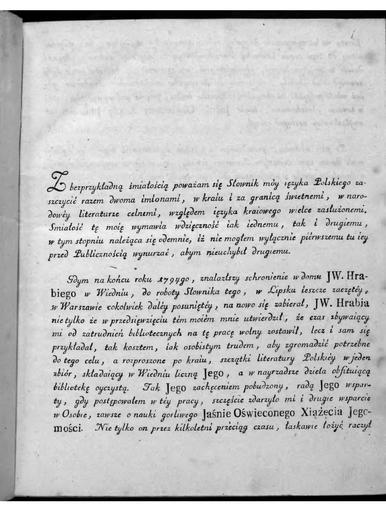 Z bezprzykładną śmiałością poważam się Słownik móy ięzyka Polskiego za-
szczycić razem dwoma imionami, w kraiu i za granicą świetnemi, w naro-
dowéy literaturze celnemi, względem ięzyka kraiowego wielce zasłużonemi.
Smiałość tę moię wymawia wdzięczność iak iednemu, tak i drugiemu,
w tym stopniu należąca się odemnie, iż nie mogłem wyłącznie pierwszemu tu iey
przed Publicznością wynurzać, abym nieuchybił drugiemu.
Gdym na końcu roku 1794go, znalazłszy schronienie w domu JW. Hra-
biego w Wiedniu, do roboty Słownika tego, w Lipsku ieszcze zaczętéy,
w Warszawie cokolwiek daléy posuniętéy, na nowo się zabierał, JW. Hrabia
nie tylko że w przedsięwzięciu tém moiém mnie utwierdził, że czas zbywaiący
mi od zatrudnień bibliotecznych na tę pracę wolny zostawił, lecz i sam się
przykładał, tak kosztem, iak osobistym trudem, aby zgromadzić potrzebne
do tego celu, a rozproszone po kraiu, szczątki literatury Polskiéy w ieden
zbiór, składaiący w Wiedniu liczną Jego, a w nayrzadsze dzieła obfituiącą
bibliotekę oyczystą. Tak Jego zachęceniem pobudzony, radą Jego wspar-
ty, gdy postępowałem w téy pracy, szczęście zdarzyło mi i drugie wsparcie
w Osobie, zawsze o nauki gorliwego Jaśnie Oświeconego Xiążęcia Jego-
mości. Nie tylko on przez kilkoletni przeciąg czasu, łaskawie łożyć raczył